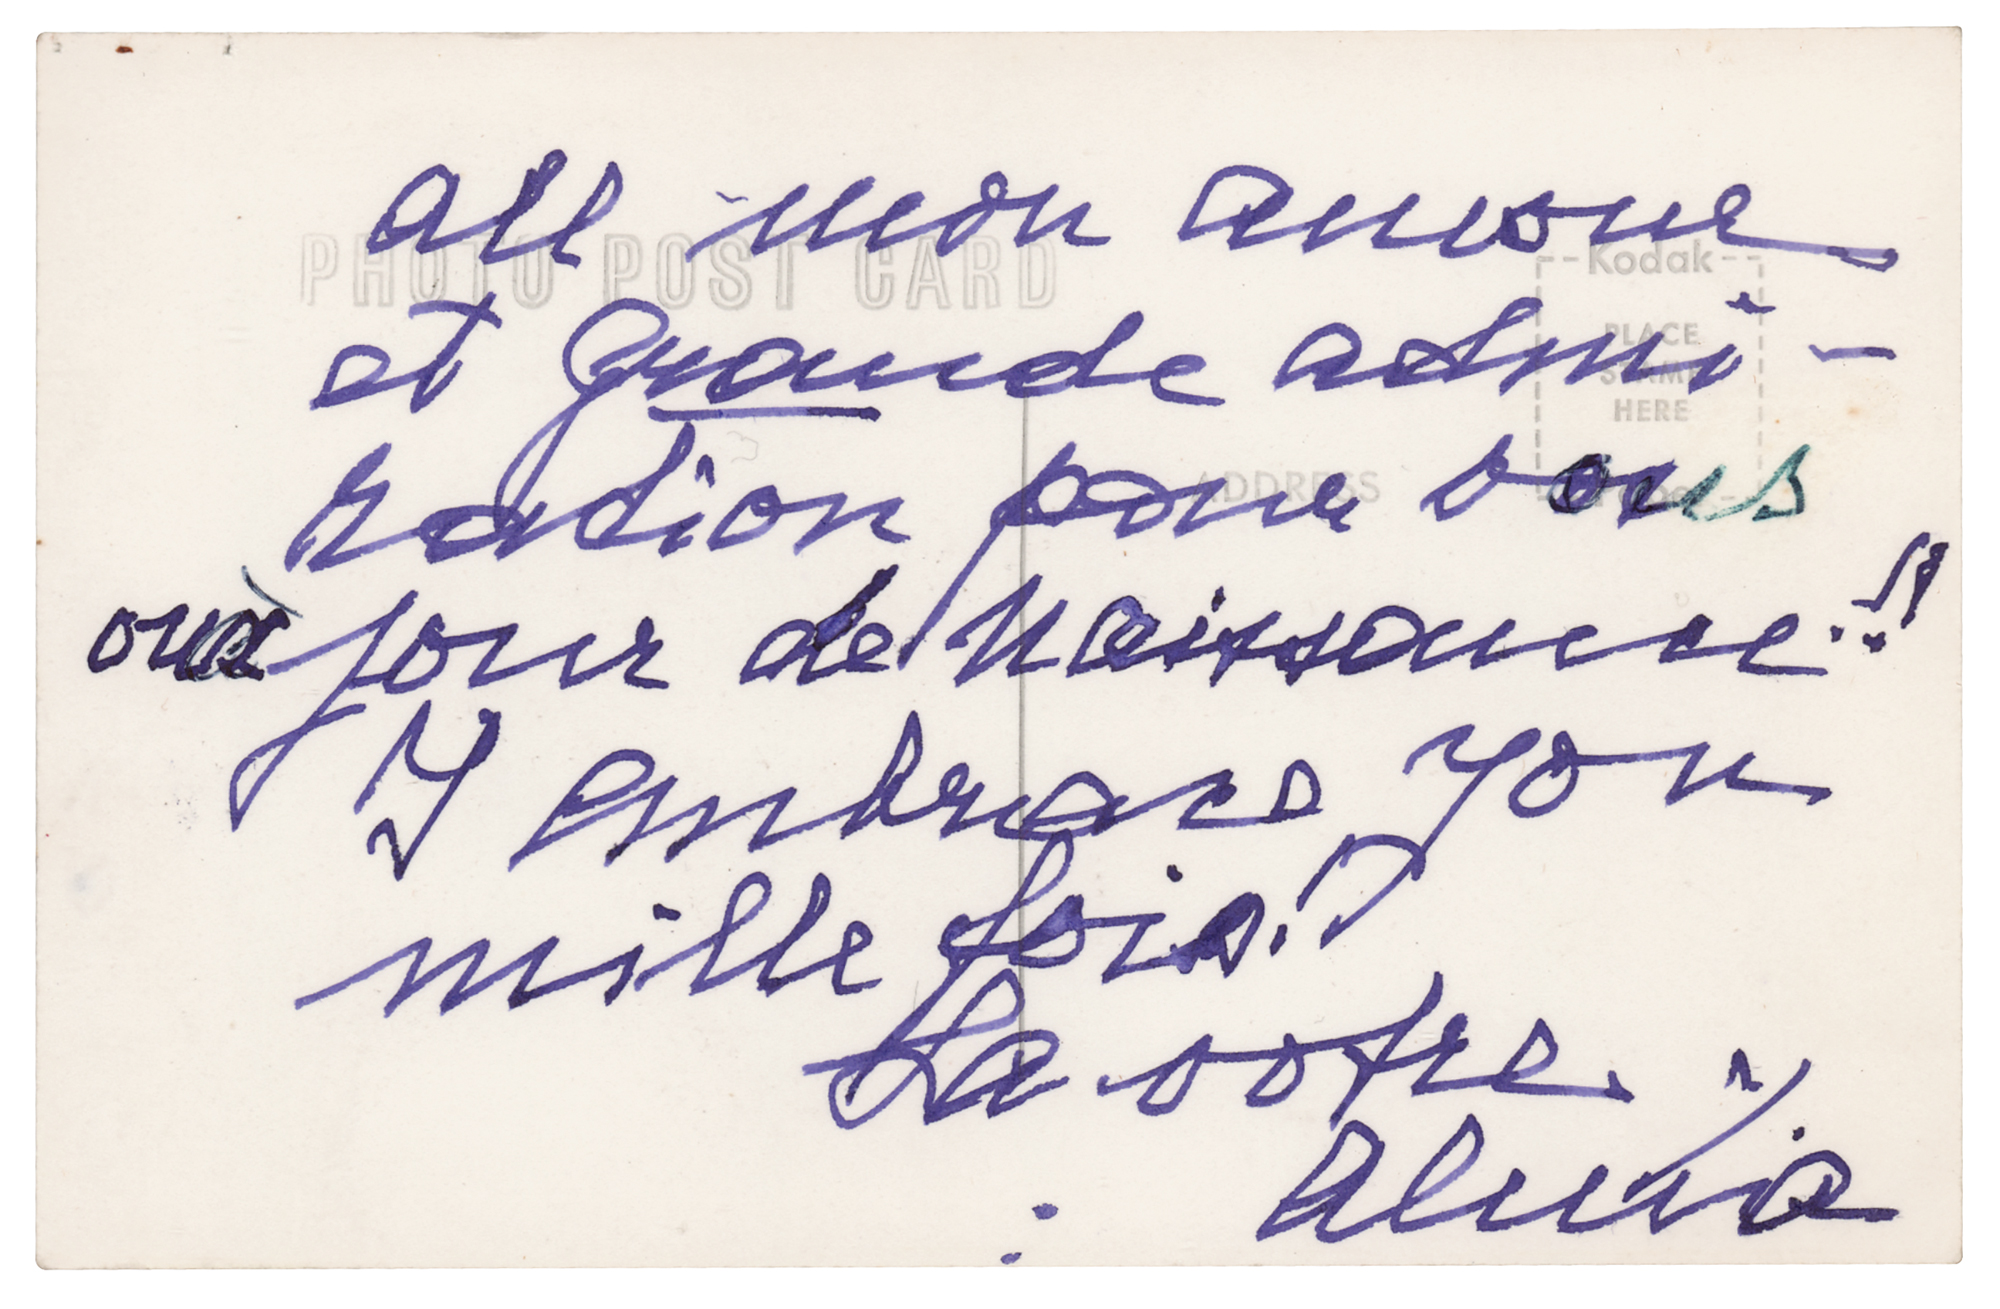 all mon amour
PHOTO POST CARD
Kodak
PLACE
STAMP
HERE
et grande admi-
ration pour vous
ADDRESS
jour de naissance!!
I embrass you
mille fois!
La votre.